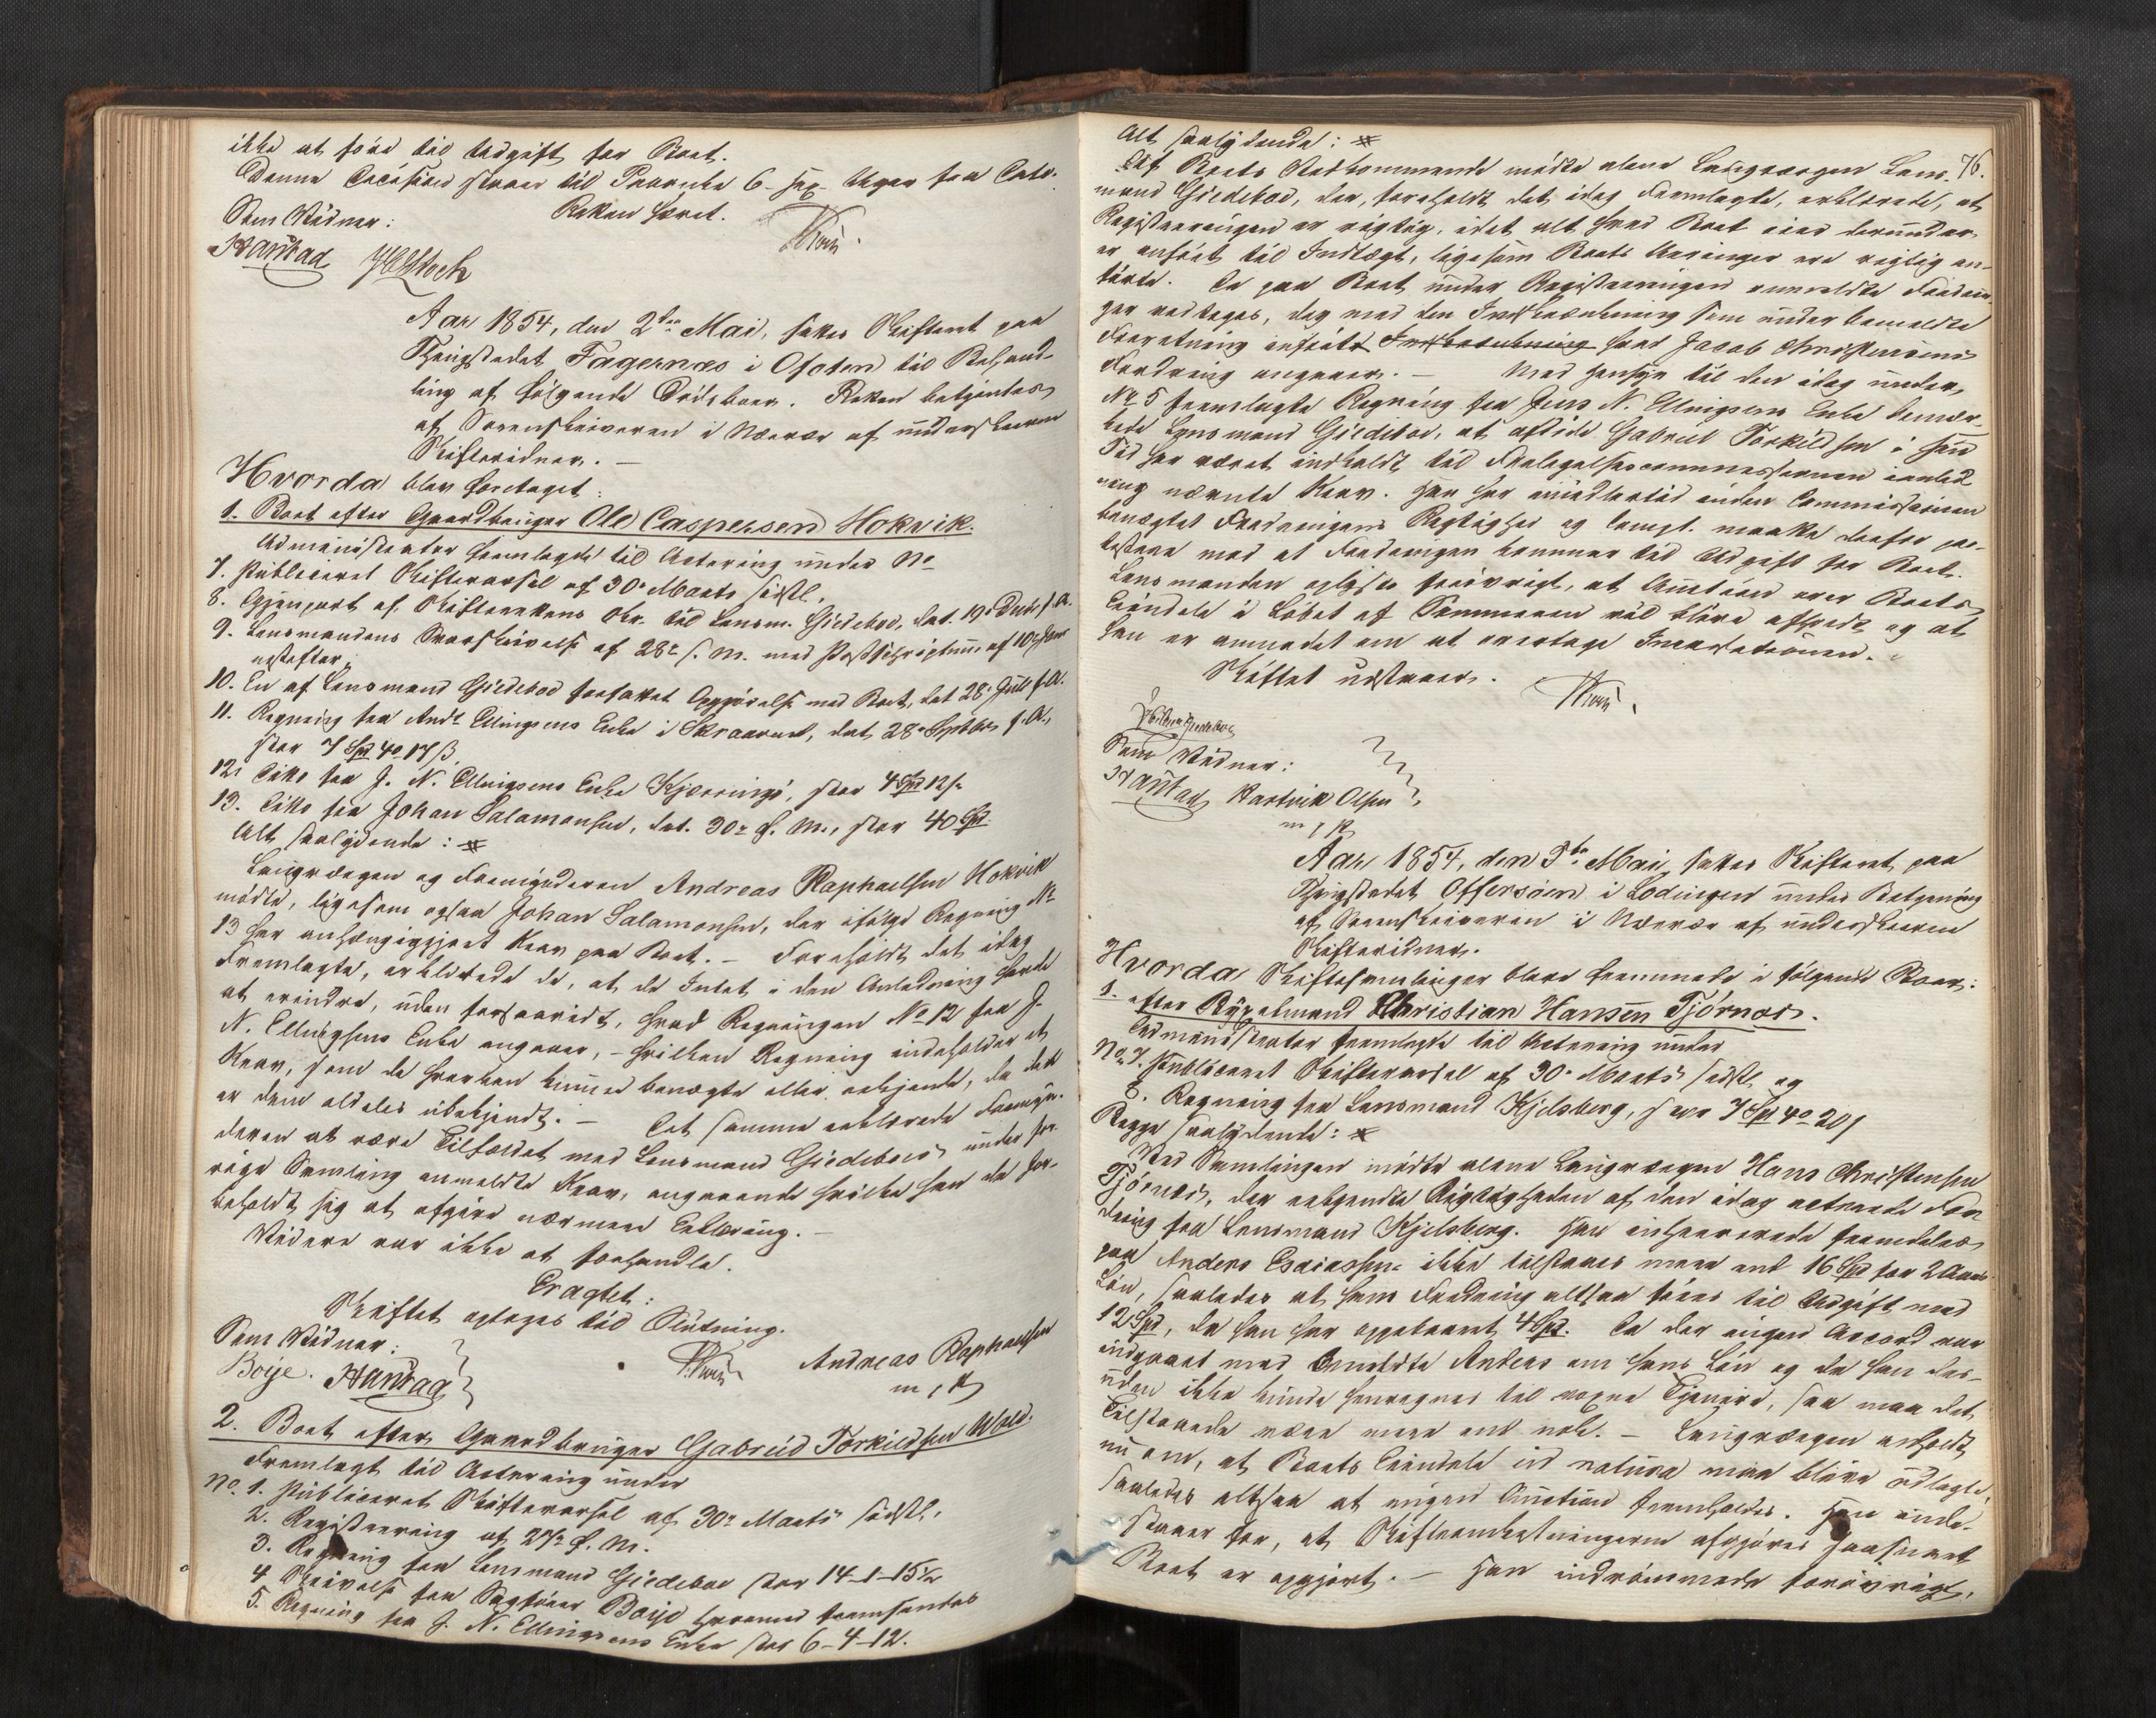 ikke at føre til Udgift for Boet.
Denne Decision staaer til Paaanke 6 sex Uger fra Dato.
Retten hævet.
Som Vidner:
Hanstad
Aar 1854, den 2den Mai, sattes Skifteret paa
Thingstedet Fagernæs i Ofoten til Behand-
ling af følgende Dødsboer. Retten betjentes
af Sorenskriveren i Nærvær af underskrevne
Skiftevidner. –
Hvorda blev foretaget:
1. Boet efter Gaardbruger Ole Caspersen Hokvik.
Administrator fremlagde til Actering under No
7. Publiceret Skiftevarsel af 30e Marts sidstl.
8. Gjenpart af Skifterettens Skr. til Lensm. Giæbel, dat. 19e Decbr f. A.
9. Lensmandens Svarskrivelse af 28e s. M. med Postscriptum af 10e
næstefter.
10. En af Lensmand Giæver forfattet Opgjørelse med Boet, dat 28e Juli f. A.
11. Regning fra Andr. Ellingsens Enke i Skraaven, dat 28e Septbr f. A.,
stor 7 Spd 4 o 17 ß.
12. Ditto fra J. N. Ellingsens Enke Kjærringø, stor 4 Spd 12 ß.
13. Ditto fra Johan Salamonsen, dat. 30e f. M., stor 40 Spd.
Alt saalydende: #
Laugværgen og Formynderen Andreas Raphaelsen Hokvik
mødte, ligesom ogsaa Johan Salamonsen, der ifølge Regning No
13 har anhængiggjort Krav paa Boet. – Foreholdt det idag
Fremlagte, erklærede de, at de Intet i den Anledning havde
at erindre, uden forsaavidt, hvad Regningen No 12 fra J.
N. Ellingsens Enke angaaer, – hvilken Regning indeholder et
Krav, som de hverken kunne benægte eller erkjende, da det
er dem aldeles ubekjendt. – Det samme erklærede Formyn-
deren at være Tilfældet med Lensmand under for-
rige Samling anmeldte Krav, angaaende hvilke han da for-
beholdt sig at afgive nærmere Erklæring. –
Videre var ikke at forhandle.
Eragtet:
Skiftet optages til Slutning.
Som Vidner:
Boije. Hanstad
Andreas Raphaelsen
m. p.
2. Boet efter Gaardbruger Gabriel Torkildsen
Fremlagt til Actering under
No. 1. Publiceret Skiftevarsel af 30e Marts sidstl.
2. Registrering af 27e f. M.
3. Regning fra Lensmand stor 14–1–15½
4 Skrivelse fra Sagfører Boije hvormed fremsendes
5. Regning fra J. N. Ellingsens Enke stor 6–4–12.
76.
Alt saalydende: #
Af Boets Vedkommende mødte alene Laugværgen Lens-
mand, der, foreholdt det idag Fremlagte, erklærede, at
Registreringen er rigtig, idet alt hvad Boet eier derunder
er anført til Indtægt, ligesom Boets Værdier ere rigtig an-
førte. De paa Boet under Registreringen anmeldte Fordrin-
ger vedtages, dog med den Indskrænkning som under bemeldte
Forretning anført Indskrænkning hvad Jacob Christensens
Fordring angaaer. – Med Hensyn til den idag under
No 5 fremlagte Regning fra Jens N. Ellingsens Enke bemær-
kede Lensmand, at afdøde Gabriel Torkildsen i sin
Tid har været indkaldt til Forligelsescommissionen i anled-
ning nævnte Krav. Han har imidlertid inden Commissionen
benægtet Fordringens Rigtighed og Compt. maatte derfor pro-
testere mod at Fordringen kommer til Udgift for Boet.
Lensmanden oplyste forøvrigt, at Auction over Boets
Eiendele i Løbet af Sommeren vil blive afholdt og at
han er anmodet om at overtage Incassationen.
Skiftet udstaaer.
Som Vidner:
Hanstad Hartvik Olsen
m. p.
Aar 1854, den 5te Mai, sattes Skifteret paa
Thingstedet Offersøen i Lødingen under Betjening
af Sorenskriveren i Nærvær af underskrevne
Skiftevidner.
Hvorda Skiftesamlinger bleve fremmede i følgende Boer:
1. efter Christian Hansen Tjørnæs.
Administrator fremlagde til Actering under
No. 7. Publiceret Skiftevarsel af 30e Marts sidstl. og
8. Regning fra Lensmand Kjelsberg, stor 7 Spd 4 o 20 ß
Begge saalydende: #
Ved Samlingen mødte alene Laugværgen Hans Christensen
Tjørnæs, der erkjendte Rigtigheden af den idag acterede For-
dring fra Lensmand Kjelsberg. Han fremdeles
paa Anders Esaiassen ikke tilstaaes mere end 16 Spd for 2 Aars
Løn, saaledes at hans Fordring altsaa føres til Udgift med
12 Spd, da han har oppebaaret 4 Spd. Da der ingen Accord var
indgaaet med bemeldte Anders om hans Løn og da han des-
uden ikke kunde henregnes til voxne Tjenere, saa maa det
Tilstaaede være mere end nok. – Laugværgen anholdt
nu om, at Boets Eiendele in natura maa blive udlagte,
saaledes altsaa at ingen Auction fremholdes. Han inde-
staaer for, at Skifteomkostningerne afgjøres saasnart
Boet er opgjort. – Han indrømmede forøvrigt,